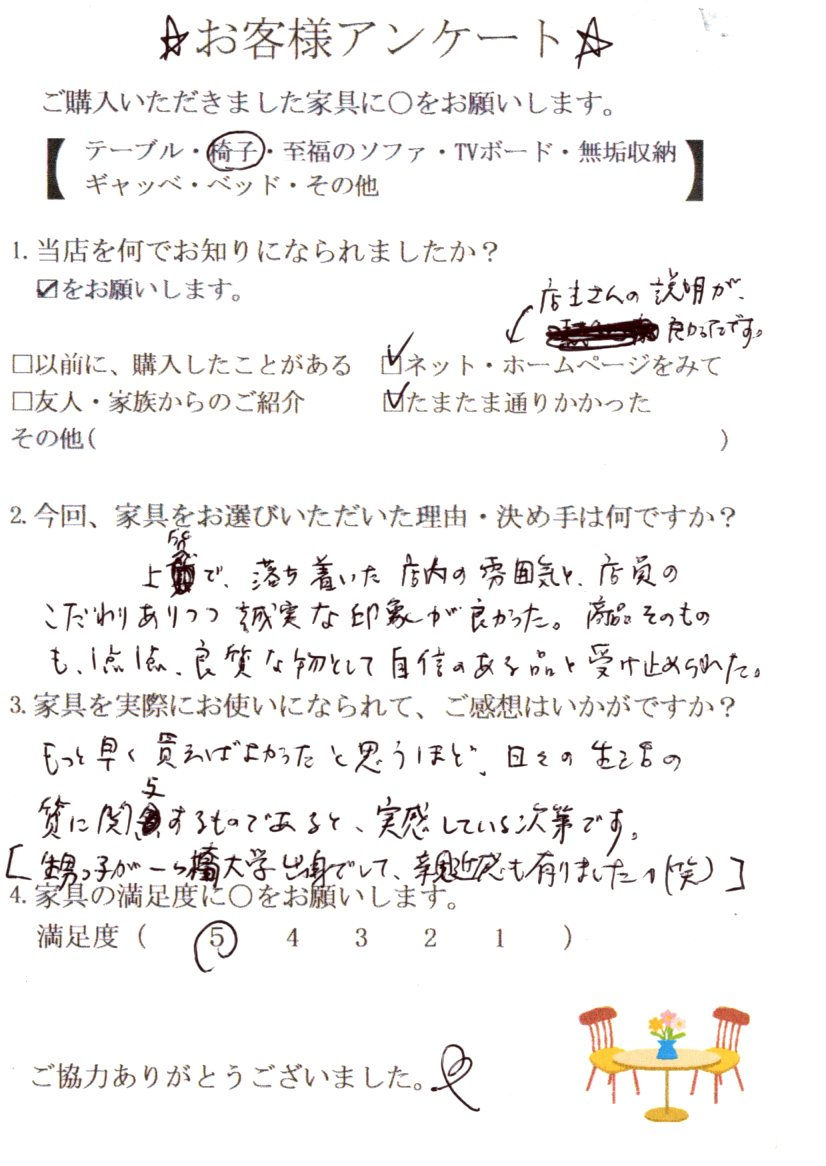 ☆お客様アンケート☆
ご購入いただきました家具に〇をお願いします。
【 テーブル・椅子・至福のソファ・TVボード・無垢収納
ギャッベ・ベッド・その他 】
1. 当店を何でお知りになられましたか？
☑をお願いします。
店主さんの説明が、
良かったです。
□以前に、購入したことがある ☑ネット・ホームページをみて
□友人・家族からのご紹介 ☑たまたま通りかかった
その他( )
2. 今回、家具をお選びいただいた理由・決め手は何ですか？
上質で、落ち着いた店内の雰囲気と、店員の
こだわりありつつ誠実な印象が良かった。商品そのもの
も、1点1点、良質な物として自信のある品と受け止められた。
3. 家具を実際にお使いになられて、ご感想はいかがですか？
もっと早く買えばよかったと思うほど、日々の生活の
質に関与するものであると、実感している次第です。
[甥っ子が一橋大学出身でして、親近感も有りました(笑)]
4. 家具の満足度に〇をお願いします。
満足度 ( 5 4 3 2 1 )
ご協力ありがとうございました。